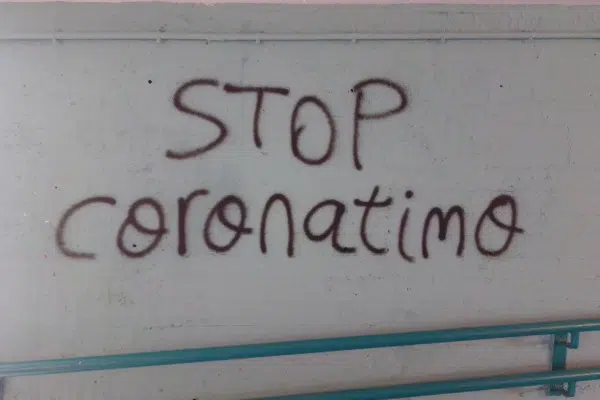 STOP
coronatimo